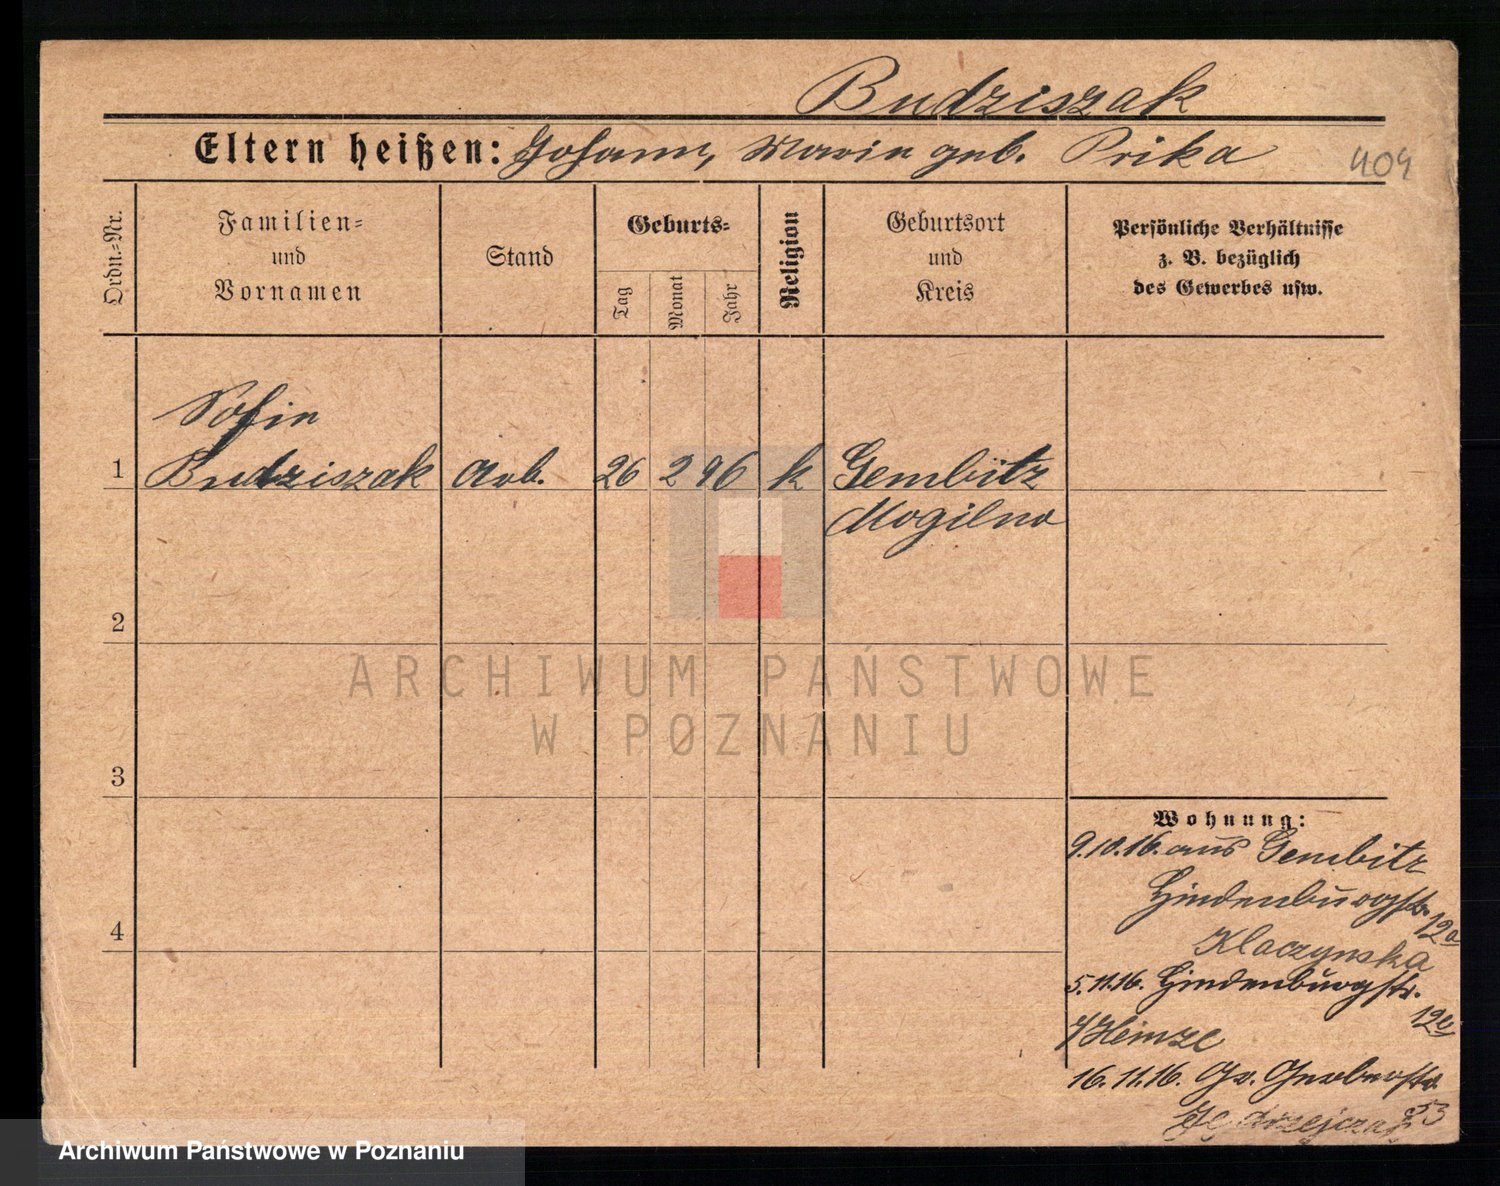 Budziszak
Eltern heißen: Johann, Marie geb. Prika
404
Ordn.=Nr.
Familien=
und
Vornamen
Stand
Geburts=
Tag
Monat
Jahr
Religion
Geburtsort
und
Kreis
Persönliche Verhältnisse
z. B. bezüglich
des Gewerbes usw.
Sofie
1 Budziszak Arb. 26 2 96 k Gembitz
Mogilno
2
3
4
ARCHIWUM PAŃSTWOWE
W POZNANIU
Wohnung:
9.10.16. aus Gembitz
Hindenburgstr.
12a
Klaczynska
5.11.16. Hindenburgstr.
12e
Heinze
16.11.16. Gr. Gerberstr.
53
Archiwum Państwowe w Poznaniu